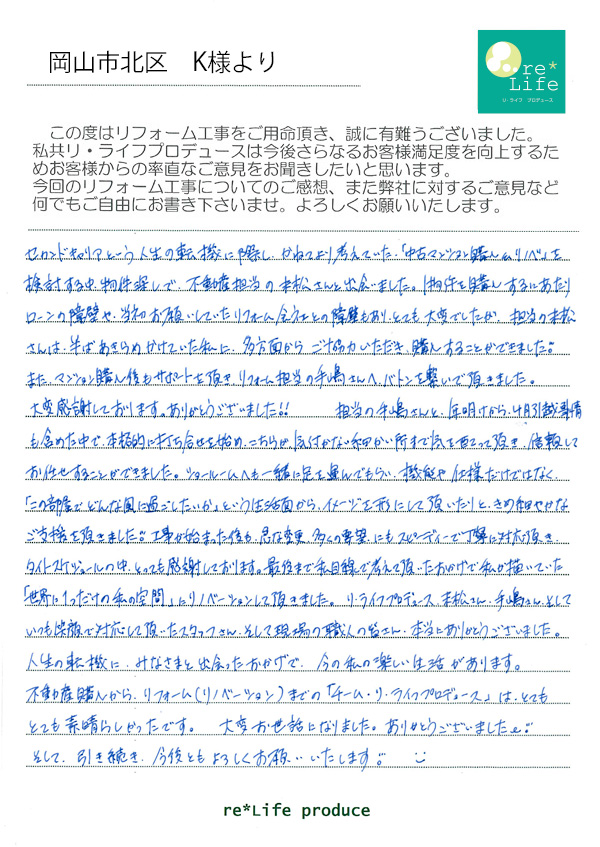 岡山市北区　K様より
re*
Life
リ・ライフ　プロデュース
この度はリフォーム工事をご用命頂き、誠に有難うございました。
私共リ・ライフプロデュースは今後さらなるお客様満足度を向上するた
めお客様からの率直なご意見をお聞きしたいと思います。
今回のリフォーム工事についてのご感想、また弊社に対するご意見など
何でもご自由にお書き下さいませ。よろしくお願いいたします。
セカンドキャリアという人生の転機に際し、かねてより考えていた「中古マンション購入&リノベ」を
検討する中、物件探しで、不動産担当の末松さんと出会いました。1物件を購入するにあたり
ローンの障壁や、当初お願いしていたリフォーム会社との障壁もあり、とても大変でしたが、担当の末松
さんは、半ばあきらめかけていた私に、多方面からご協力いただき、購入することができました。
また、マンション購入後もサポートを頂き、リフォーム担当の手嶋さんへ、バトンを繋いで頂きました。
大変感謝しております。ありがとうございました!!　担当の手嶋さんと、年明けから、4月引越事情
も含めた中で、本格的に打ち合せを始め、こちらが気付かない細かい所まで気を配って頂き、信頼して
お任せすることができました。ショールームへも一緒に足を運んでもらい、機能や仕様だけではなく、
「この部屋でどんな風に過ごしたいか」という生活面から、イメージを形にして頂いたりと、きめ細やかな
ご支援を頂きました。工事が始まった後も、急な変更、多くの要望にもスピーディーで丁寧に対応頂き、
タイトスケジュールの中、とっても感謝しております。最後まで私目線で考えて頂いたおかげで私が描いていた
「世界に1つだけの私の空間」にリノベーションして頂きました。リ・ライフプロデュース、末松さん、手嶋さん、そして
いつも笑顔で対応して頂いたスタッフさん、そして現場の職人の皆さん、本当にありがとうございました。
人生の転機に、みなさまと出会ったおかげで、今の私の楽しい生活があります。
不動産購入から、リフォーム(リノベーション)までの「チーム・リ・ライフプロデュース」は、とても
とても素晴らしかったです。　大変お世話になりました。ありがとうございました
そして、引き続き、今後ともよろしくお願いいたします。
re*Life produce